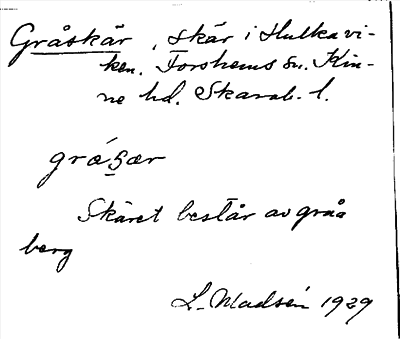 Gråskär, skär i Hulkavi-
ken. Forshems sn. Kin-
ne hd. Skarab. l.
gráʂær
Skäret består av gråa
berg
L. Madsén 1929